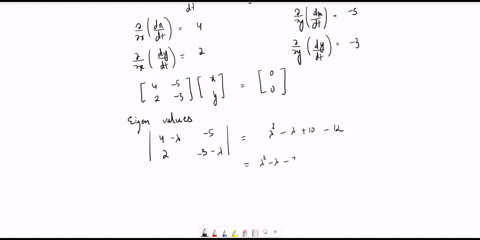 dt
∂/∂x (dx/dt) = 4   ∂/∂y (dx/dt) = -5
∂/∂x (dy/dt) = 2   ∂/∂y (dy/dt) = -3
[4 -5; 2 -3] [x; y] = [0; 0]
Eigen values
|4-λ -5; 2 -3-λ| = λ² - λ + 10 - 12
= λ² - λ -